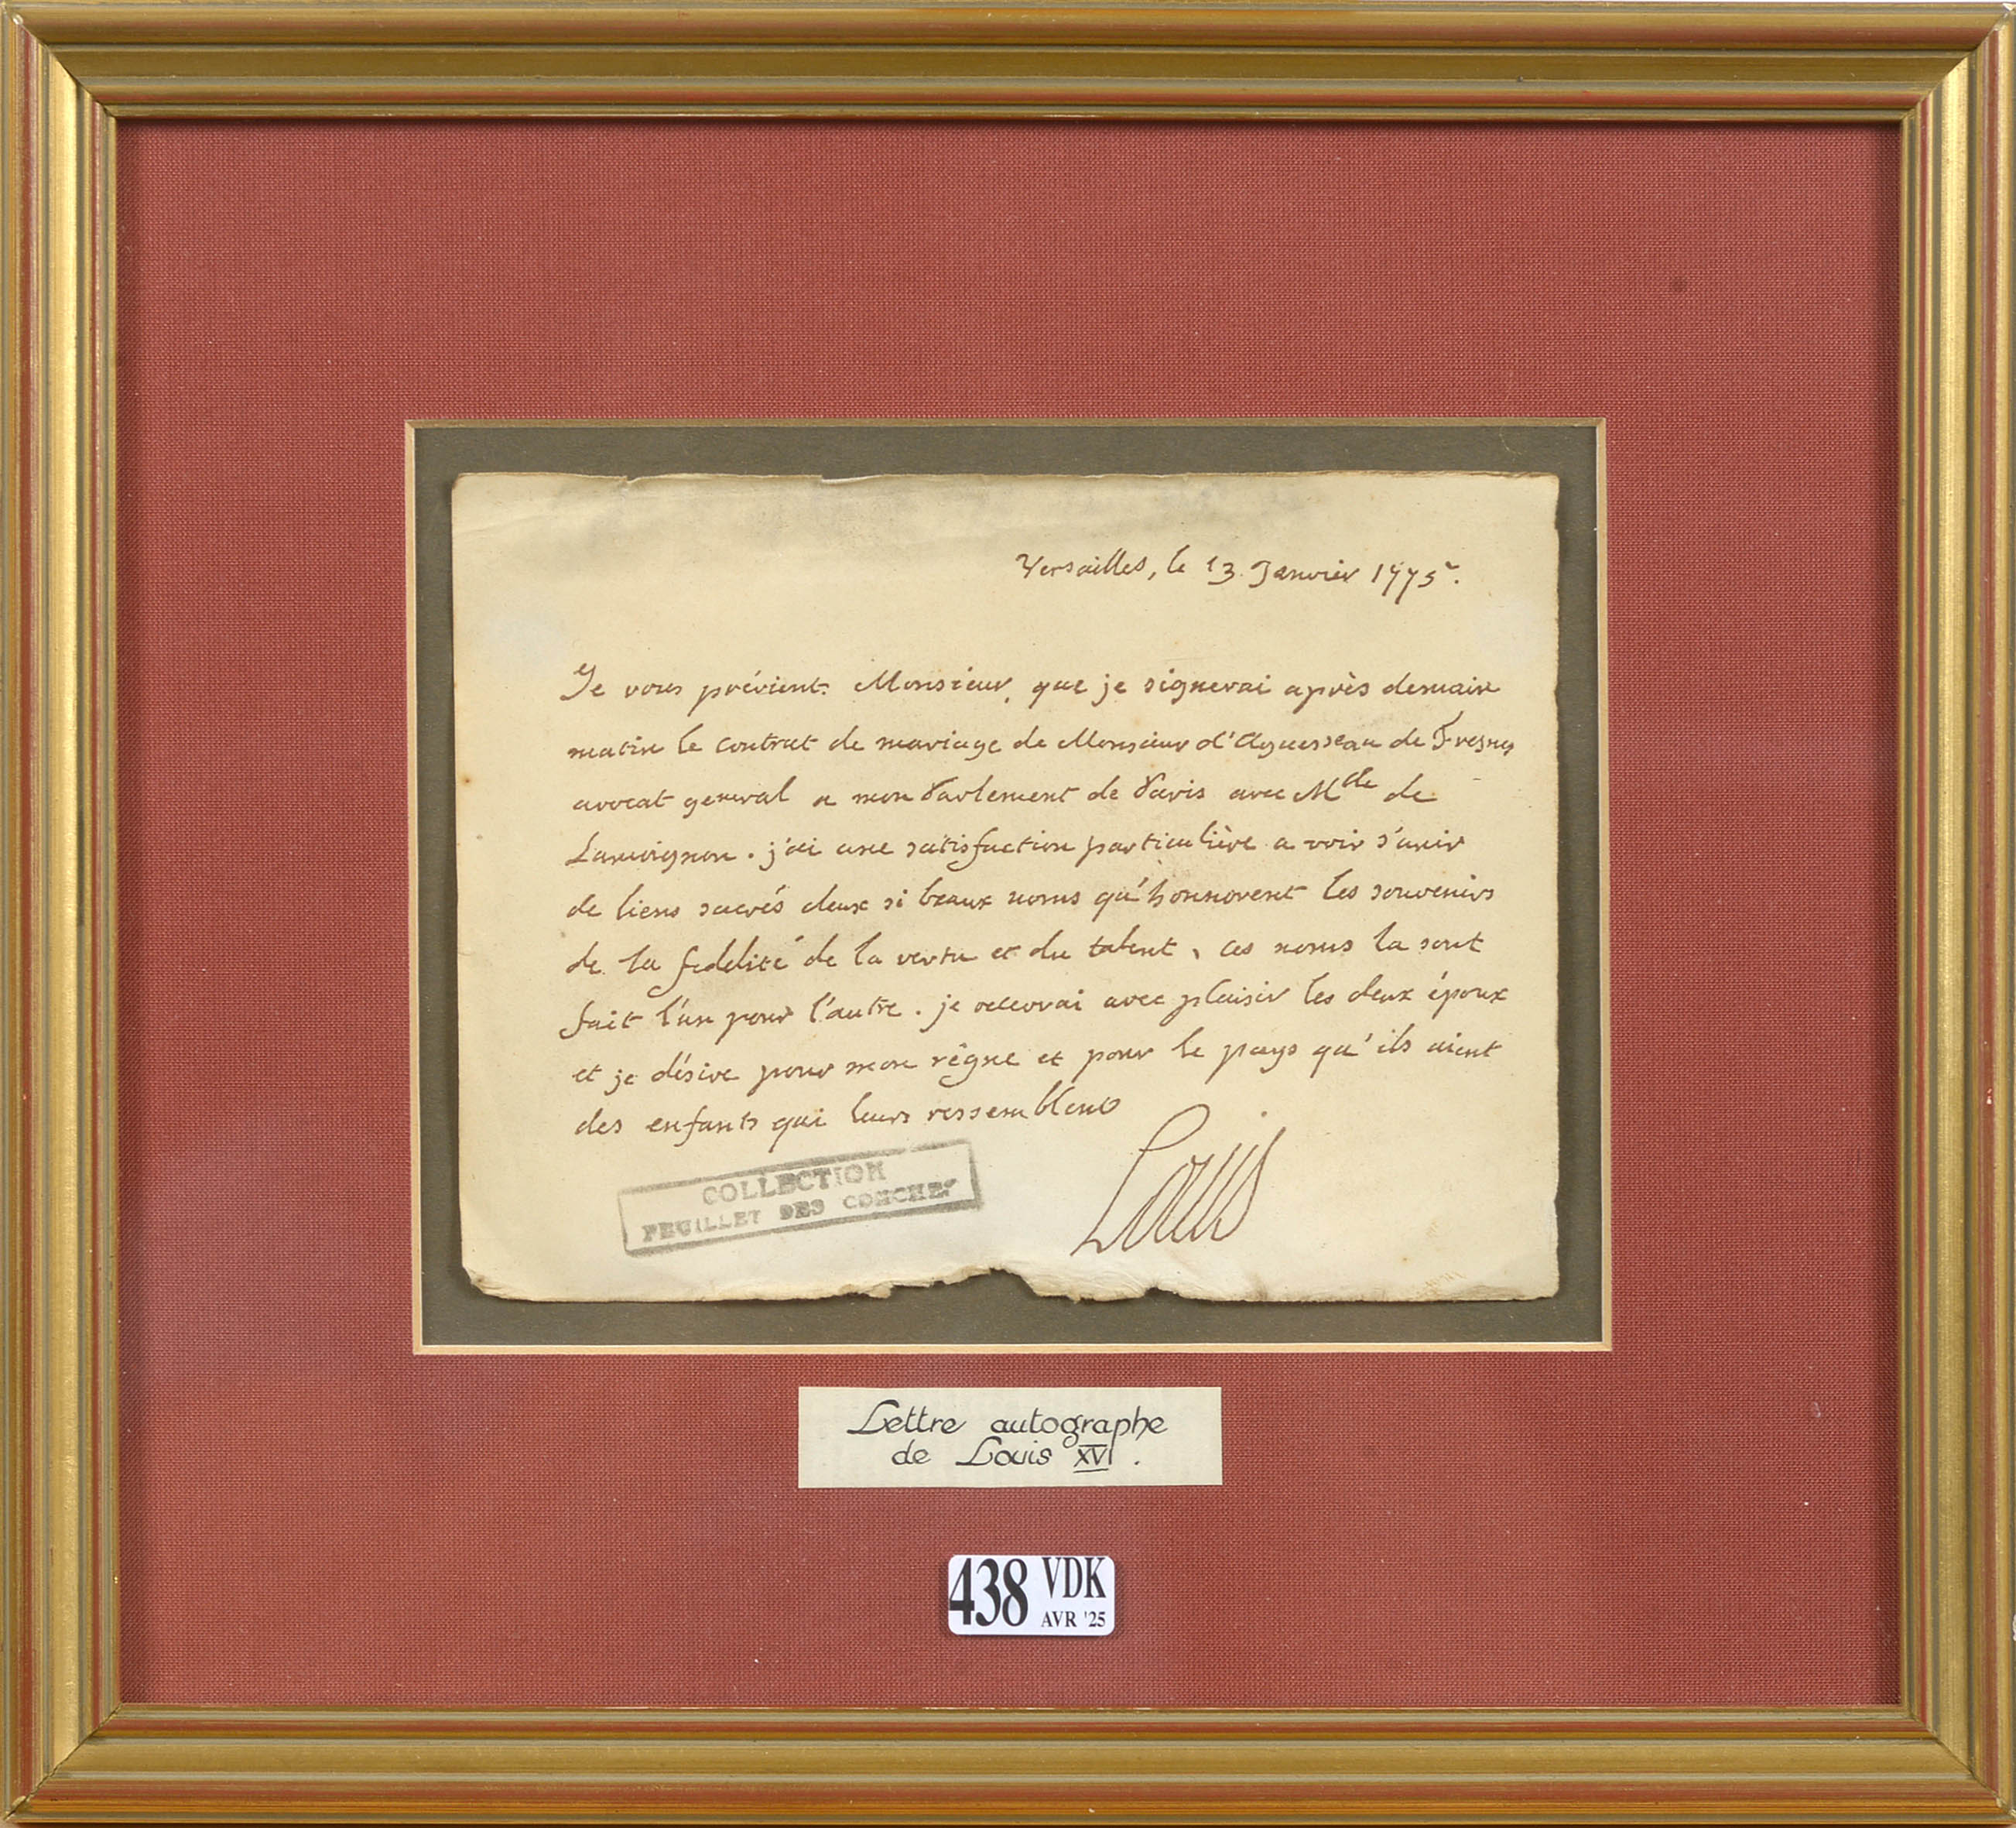 Versailles, le 13. Janvier 1775.
Je vous prévient. Monsieur, que je signerai après demain
matin le contrat de mariage de Monsieur d'Aguesseau de Fresnes
avocat general a mon Parlement de Paris avec Mlle de
Lamoignon. j'ai une satisfaction particulière a voir s'unir
de liens sacrés deux si beaux noms qu'honnorent les souvenirs
de la fedelité de la vertu et du talent, ces noms la sont
fait l'un pour l'autre. je recevrai avec plaisir les deux époux
et je désire pour mon règne et pour le pays qu'ils aient
des enfants qui leurs ressemblent
Louis
COLLECTION
FEUILLET DES CONCHES
Lettre autographe
de Louis XVI.
438 VDK
AVR '25